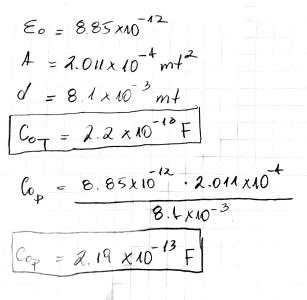 ε₀ = 8.85x10⁻¹²
A = 2.011x10⁻⁴ mt²
d = 8.1x10⁻³ mt
C₀T = 2.2x10⁻¹³ F
C₀p = 8.85x10⁻¹² · 2.011x10⁻⁴
8.1x10⁻³
C₀p = 2.19x10⁻¹³ F